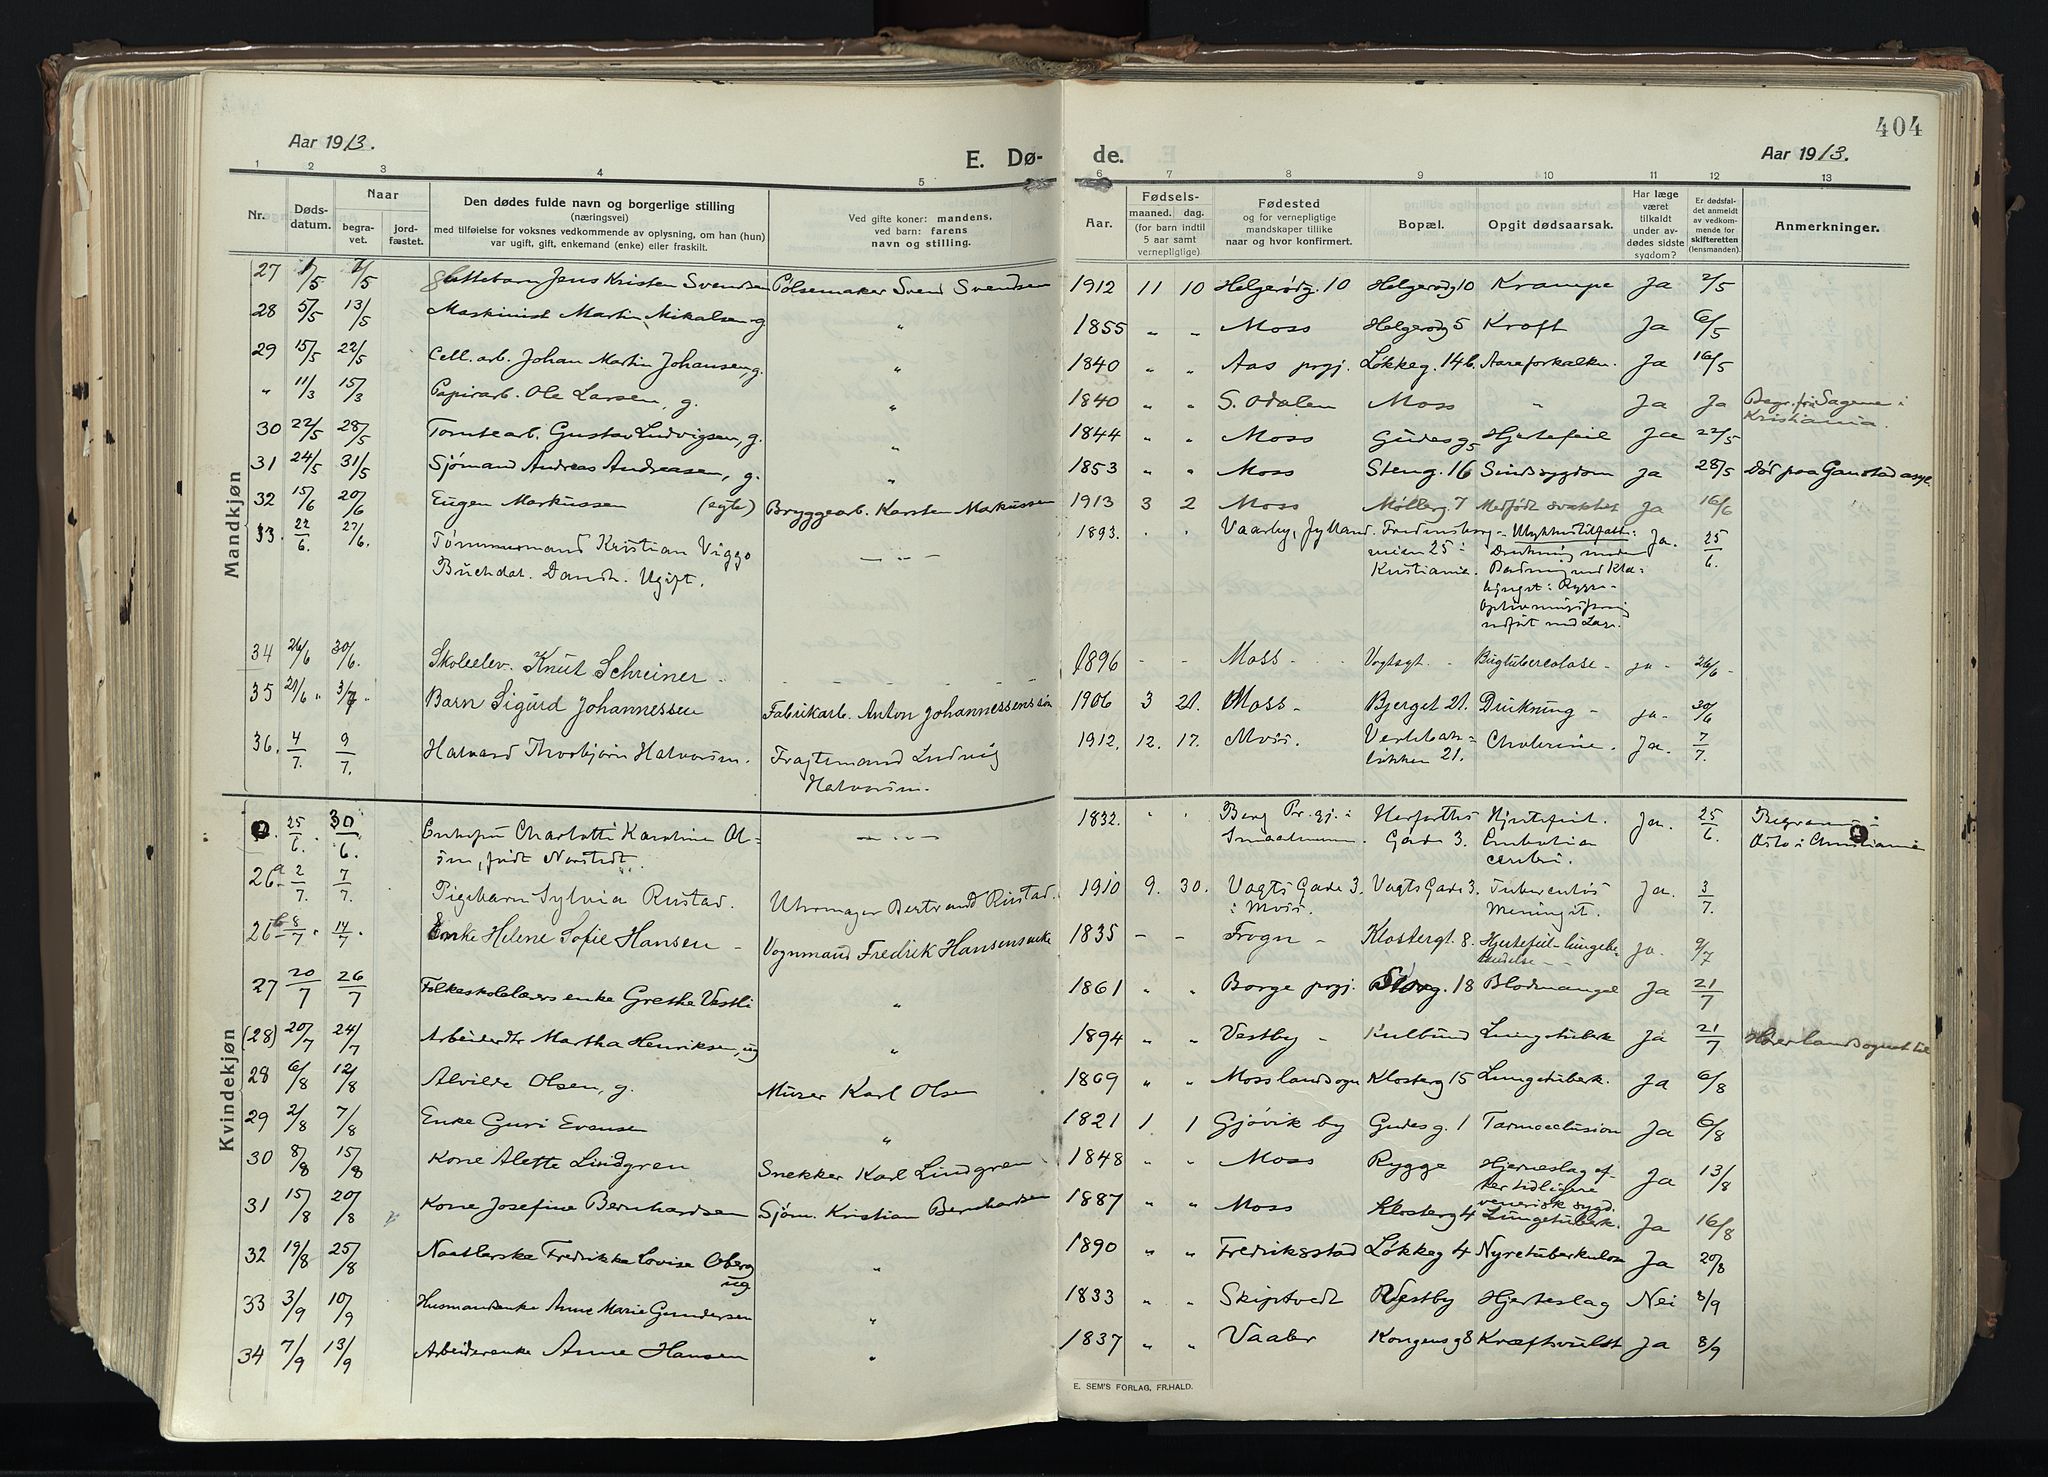 404
Aar 1913.
E. Dø-
de.
Aar 1913.
1 2 3 4 5 6 7 8 9 10 11 12 13
Nr.
Døds-
datum.
Naar
begra-
vet.
jord-
fæstet.
Den dødes fulde navn og borgerlige stilling
(næringsvei)
med tilføielse for voksnes vedkommende av oplysning, om han (hun)
var ugift, gift, enkemand (enke) eller fraskilt.
Ved gifte koner: mandens,
ved barn: farens
navn og stilling.
Aar.
Fødsels-
maaned. dag.
(for barn indtil
5 aar samt
vernepligtige).
Fødested
og for vernepligtige
mandskaper tillike
naar og hvor konfirmert.
Bopæl.
Opgit dødsaarsak.
Har læge
været
tilkaldt
under av-
dødes sidste
sygdom?
Er dødsfal-
det anmeldt
av vedkom-
mende for
skifteretten
(lensmanden).
Anmerkninger.
Mandkjøn
27 1/5 7/5 Gttebarn Jens Kristen Svendsen Pølsemaker Svend Svendsen 1912 11 10 Helgerødg. 10 Helgerødg 10 Krampe Ja 2/5
28 5/5 13/5 Maskinist Martin Mikalsen, g. " 1855 " " Moss Helgerødg 5 Kræft Ja 6/5
29 15/5 22/5 Cell. arb. Johan Martin Johansen, g. " 1840 " " Aas prgj. Løkkeg. 14b. Aareforkalkn. Ja 16/5
" 11/3 15/3 Papirarb. Ole Larsen, g. " 1840 " " S. Odalen Moss " Ja Ja Begr. fra Sagene i
Kristiania.
30 22/5 28/5 Tomtearb. Gustav Ludvigsen, g. " 1844 " " Moss Gudesg 5 Hjertefeil Ja 22/5
31 24/5 31/5 Sjømand Andreas Andreasen, g. " 1853 " " Moss Steng. 16 Sindssygdom Ja 28/5 Død paa Gaustad asyl.
32 15/6 20/6 Eugen Markussen (egte) Bryggearb. Karsten Markussen 1913 3 2 Moss Møllerg. 7 Medfødt svakhet Ja 16/6
33. 22/6. 27/6. Tømmermand Kristian Viggo 1893. Vaarby, Jylland. Fredensborg- Ulykkestilfælde: Ja. 25/6.
Buchdal. Dansk. Ugift. veien 25 i Drukning under
Kristiania. Badning
34 26/6 30/6. Skoleelev. Knut Schreiner 1896 - - Moss Vogtsgt. Bugtuberculose - ja - 26/6 -
35 28/6 3/7 Barn Sigurd Johannessen Fabrikarb. Anton Johannessens søn 1906 3 21. Moss - Bjerget 21. Drukning - ja - 30/6
36. 4/7. 9/7. Halvard Thorbjørn Halvorsen. Fragtemand Ludvig 1912. 12. 17. Moss. Verlebak- Cholerine. Ja. 7/7.
Halvorsen. løkken 21.
Kvindekjøn
25/6. 30/6. Enkefru Charlotte Karoline Ol- 1832. " " Berg Pr.gj. i Herfoths Hjertefeil. Ja. 25/6. Begraven i
sen, født Norstedt. Smaalenene. Gade 3. Embolia Oslo i Christiania
cerebri.
26a 2/7. 7/7. Pigebarn Sylvia Rustad. Uhrmager Bertrand Rustad. 1910 9. 30. Vogts Gade 3. Vogts Gade 3. Tuberculøs Ja. 3/7.
i Moss. Meningit.
26b 8/7. 14/7. Enke Helene Sofie Hansen - Vognmand Fredrik Hansens enke 1835 - - Frogn - Klostergt. 8. Hjertefeil - lungebe-
tændelse - Ja. 9/7
27 20/7 26/7 Folkeskolelærers enke Grethe Vestli " 1861 " " Borge prgj. Storg. 18 Blodmangel Ja 21/7
(28) 20/7 24/7 Arbeiderdtr Martha Henriksen, ug " 1894 " " Vestby - Kulbund Lungetuberk Ja 21/7
28 6/8 12/8 Alvilde Olsen, g. Murer Karl Olsen 1869 " " Moss landsogn Klosterg 15 Lungetuberk. Ja 6/8
29 2/8 7/8 Enke Guri Evensen " 1821 1 1 Gjøvik by Gudesg. 1 Tarmocclusion Ja 6/8
30 8/8 15/8 Kone Alette Lindgren Snekker Karl Lindgren 1848 " " Moss Rygge Hjerneslag ef-
ter tidligere
venerisk sygd. Ja 13/8
31 15/8 20/8 Kone Josefine Bernhardsen Sjøm. Kristian Bernhardsen 1887 " " Moss Klosterg 4 Lungetuberk. Ja 16/8
32 19/8 25/8 Naatlerske Fredrikke Lovise Oberg " 1890 " " Fredriksstad Løkkeg 4 Nyretuberkulose Ja 20/8
ug
33 3/9 10/9 Husmandsenke Anne Marie Gundersen " 1833 " " Skiptvedt Vestby Hjerteslag Nei 8/9
34 7/9 13/9 Arbeiderenke Anne Hansen " 1837 " " Vaaler Kongensg 8 Kræftsvulst Ja 8/9
E. SEM'S FORLAG, FR.HALD.